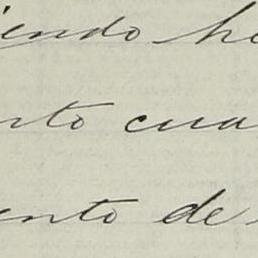 iendo ha
rto cua
ento de